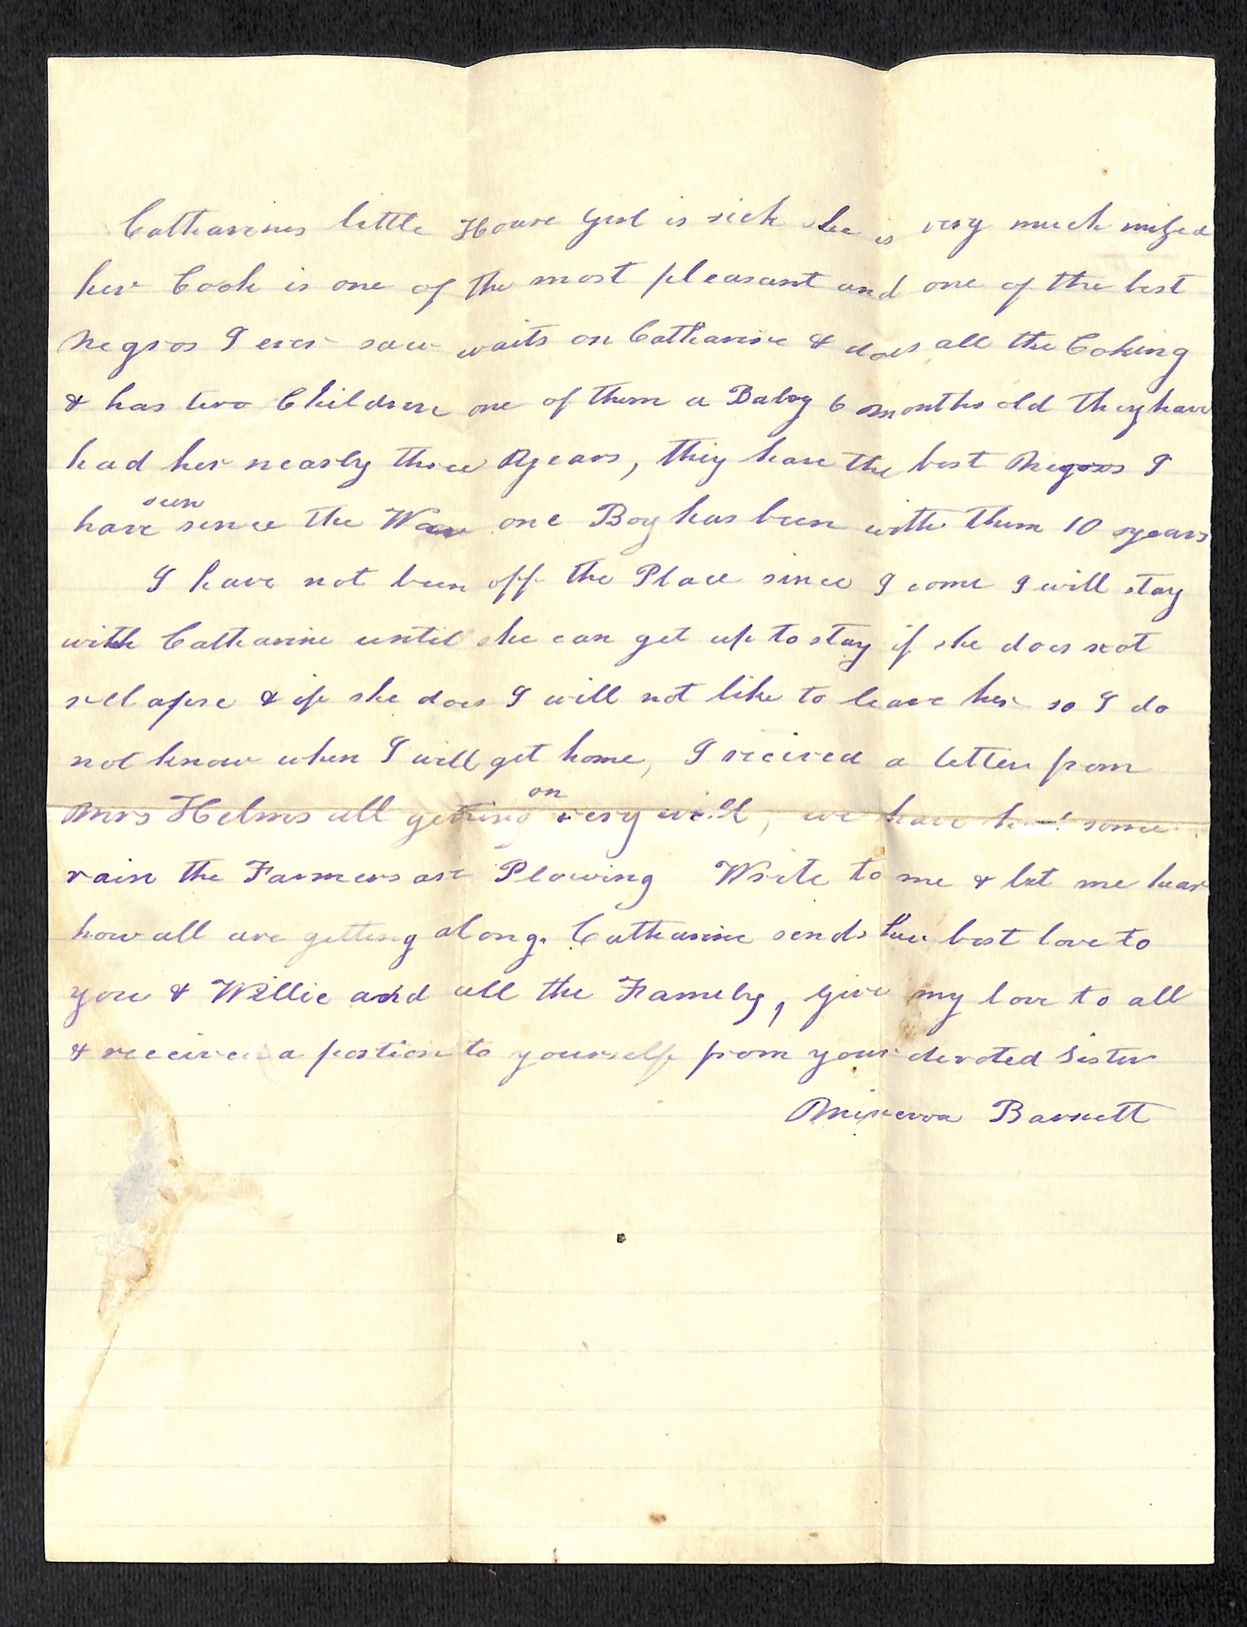 Catharines little House Girl is sick she is very much mised
her Cook is one of the most pleasant and one of the best
Negros I ever saw waits on Catharine & does all the Coking
& has two Children one of them a Baby 6 months old they have
had her nearly three years, they have the best Negros I
have seen since the War one Boy has been with them 10 years
I have not been off the Place since I come I will stay
with Catharine until she can get up to stay if she does not
relapse & if she does I will not like to leave her so I do
not know when I will get home, I recived a letter from
Mrs Helms all getting on very well, we have had some
rain the Farmers are Plowing Write to me & let me hear
how all are getting along. Catharine sends her best love to
you & Willie and all the Famely, give my love to all
& receive a portion to yourself from your devoted Sister
Minerva Barnett